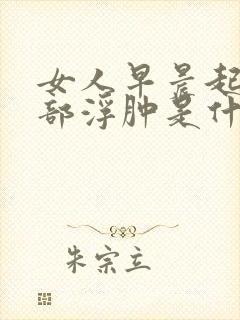 女人早晨起
部浮肿是什
朱宗立